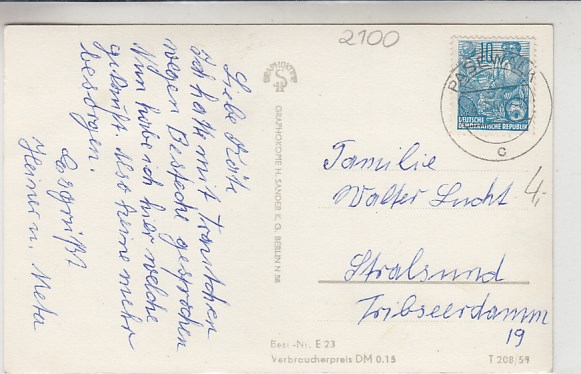 2100
Liebe Käte
Ich hatte mit Trautchen
wegen Bestecke gesprochen
Nun habe ich hier welche
gekauft. Also keine mehr
besorgen.
Es grüßt
Heiner u. Meta
GRAPHOKOPIE
GRAPHOKOPIE H. SANDER K. G. BERLIN N 58
10
DEUTSCHE
DEMOKRATISCHE REPUBLIK
PASEWALK 1
c
Familie
Walter Lucht
4,-
Stralsund
Tribseerdamm
19
Best.-Nr. E 23
Verbraucherpreis DM 0.15
T 208/59